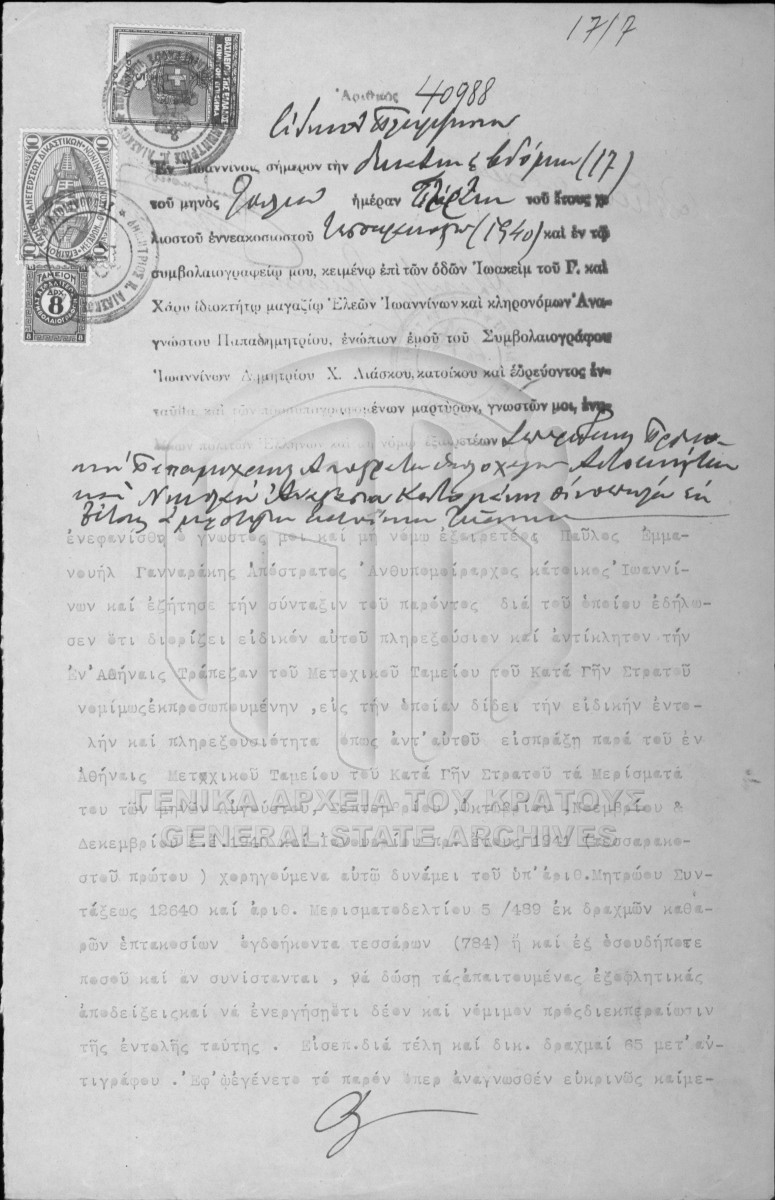 17/7
Ἀριθμὸς 40988
Εἰδικὸν Πληρεξούσιον
Ἐν Ἰωαννίνοις σήμερον τὴν δεκάτην ἑβδόμην (17)
τοῦ μηνὸς Ἰουλίου ἡμέραν Τετάρτην τοῦ ἔτους χι
λιοστοῦ ἐννεακοσιοστοῦ τεσσαρακοστοῦ (1940) καὶ ἐν τῷ
συμβολαιογραφείῳ μου, κειμένῳ ἐπὶ τῶν ὁδῶν Ἰωακεὶμ τοῦ Γ. καὶ
Χάρυ ἰδιοκτήτῳ μαγαζίῳ Ἐλεῶν Ἰωαννίνων καὶ κληρονόμων Ἀνα-
γνώστου Παπαδημητρίου, ἐνώπιον ἐμοῦ τοῦ Συμβολαιογράφου
Ἰωαννίνων Δημητρίου Χ. Λιάσκου, κατοίκου καὶ ἑδρεύοντος ἐν-
ταῦθα, καὶ τῶν προσυπογραφομένων μαρτύρων, γνωστῶν μοι, ἐνη-
λίκων πολιτῶν Ἑλλήνων καὶ μὴ νόμῳ ἐξαιρετέων
καὶ Νικολάου
ἐνεφανίσθη ὁ γνωστός μοι καί μή νόμῳ ἐξαιρετέος Παῦλος Ἐμμα-
νουήλ Γανναράκης Ἀπόστρατος Ἀνθυπομοίραρχος κάτοικος Ἰωαννί-
νων καί ἐζήτησε τήν σύνταξιν τοῦ παρόντος διά τοῦ ὁποίου ἐδήλω-
σεν ὅτι διορίζει εἰδικόν αὐτοῦ πληρεξούσιον καί ἀντίκλητον τήν
Ἐν Ἀθήναις Τράπεζαν τοῦ Μετοχικοῦ Ταμείου τοῦ Κατά Γῆν Στρατοῦ
νομίμωςἐκπροσωπουμένην ,εἰς τήν ὁποίαν δίδει τήν εἰδικήν ἐντο-
λήν καί πληρεξουσιότητα ὅπως ἀντ'αὐτοῦ εἰσπράξῃ παρά τοῦ ἐν
Ἀθήναις Μετοχικοῦ Ταμείου τοῦ Κατά Γῆν Στρατοῦ τά Μερίσματά
του τῶν μηνῶν Αὐγούστου, Σεπτεμβρίου ,Ὀκτωβρίου ,Νοεμβρίου &
Δεκεμβρίου ἐ.ἔ.1940 καί Ἰανουαρίου πρ. ἔτους 1941 (τεσσαρακο-
στοῦ πρώτου ) χορηγούμενα αὐτῷ δυνάμει τοῦ ὑπ'ἀριθ.Μητρώου Συν-
τάξεως 12640 καί ἀριθ. Μερισματοδελτίου 5 /489 ἐκ δραχμῶν καθα-
ρῶν ἑπτακοσίων ὀγδοήκοντα τεσσάρων (784) ἤ καί ἐξ ὁσουδήποτε
ποσοῦ καί ἄν συνίστανται , νά δώσῃ τάςἀπαιτουμένας ἐξοφλητικάς
ἀποδείξειςκαί νά ἐνεργήσῃὅτι δέον καί νόμιμον πρόςδιεκπεραίωσιν
τῆς ἐντολῆς ταύτης . Εἰσεπ.διά τέλη καί δικ. δραχμαί 65 μετ'ἀν-
τιγράφου .Ἐφ'ᾧἐγένετο τό παρόν ὅπερ ἀναγνωσθέν εὐκρινῶς καίμε-
ΓΕΝΙΚΑ ΑΡΧΕΙΑ ΤΟΥ ΚΡΑΤΟΥΣ
GENERAL STATE ARCHIVES